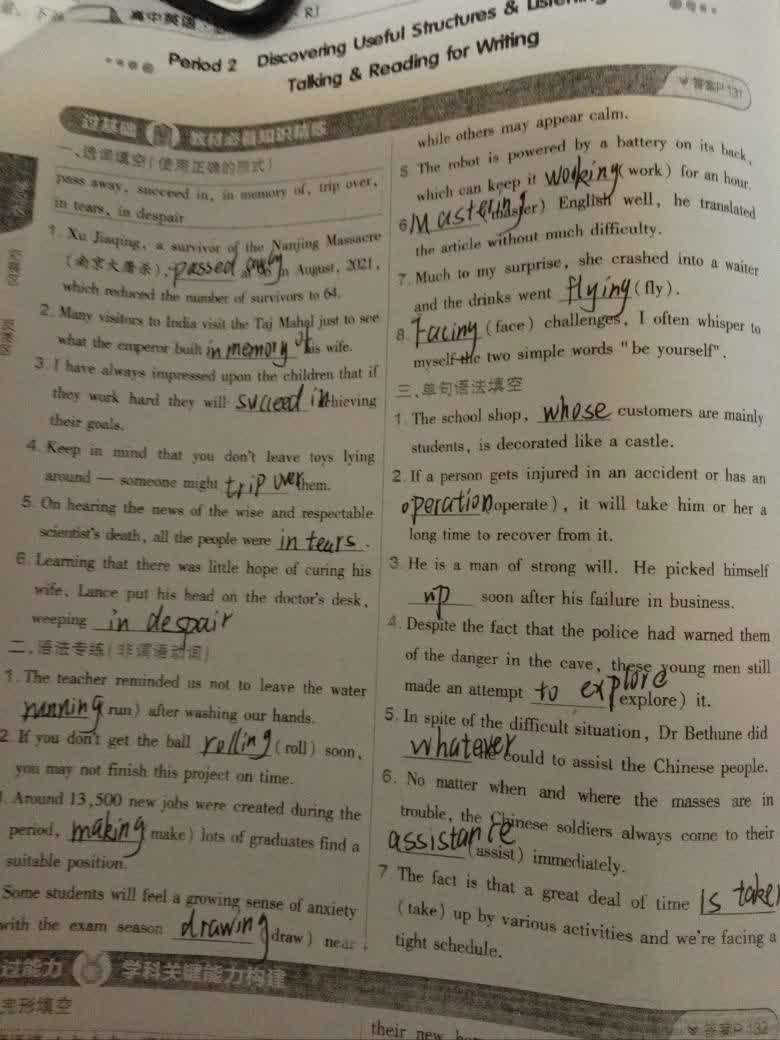 高中英语
RJ
Period 2 Discovering Useful Structures &
Talking & Reading for Writing
答案P 131
过基础 教材必备知识精练
一、选词填空(使用正确的形式)
pass away, succeed in, in memory of, trip over,
in tears, in despair
1. Xu Jiaqing, a survivor of the Nanjing Massacre
(南京大屠杀), passed away in August, 2021,
which reduced the number of survivors to 64.
2. Many visitors to India visit the Taj Mahal just to see
what the emperor built in memory of his wife.
3. I have always impressed upon the children that if
they work hard they will succeed in achieving
their goals.
4. Keep in mind that you don't leave toys lying
around — someone might trip over them.
5. On hearing the news of the wise and respectable
scientist's death, all the people were in tears.
6. Learning that there was little hope of curing his
wife, Lance put his head on the doctor's desk,
weeping in despair
二、语法专练(非谓语动词)
1. The teacher reminded us not to leave the water
running run) after washing our hands.
2. If you don't get the ball rolling (roll) soon,
you may not finish this project on time.
. Around 13,500 new jobs were created during the
period, making make) lots of graduates find a
suitable position.
Some students will feel a growing sense of anxiety
with the exam season drawing draw) near
while others may appear calm.
5 The robot is powered by a battery on its back,
which can keep it working (work) for an hour.
6 Mastering (master) English well, he translated
the article without much difficulty.
7. Much to my surprise, she crashed into a waiter
and the drinks went flying (fly).
8. Facing (face) challenges, I often whisper to
myself the two simple words "be yourself".
三、单句语法填空
1. The school shop, whose customers are mainly
students, is decorated like a castle.
2. If a person gets injured in an accident or has an
operation operate), it will take him or her a
long time to recover from it.
3. He is a man of strong will. He picked himself
up soon after his failure in business.
4. Despite the fact that the police had warned them
of the danger in the cave, these young men still
made an attempt to explore explore) it.
5. In spite of the difficult situation, Dr Bethune did
whatever he could to assist the Chinese people.
6. No matter when and where the masses are in
trouble, the Chinese soldiers always come to their
assistance (assist) immediately.
7 The fact is that a great deal of time is taken
(take) up by various activities and we're facing a
tight schedule.
过能力 学科关键能力构建
完形填空
答案P 132
their new